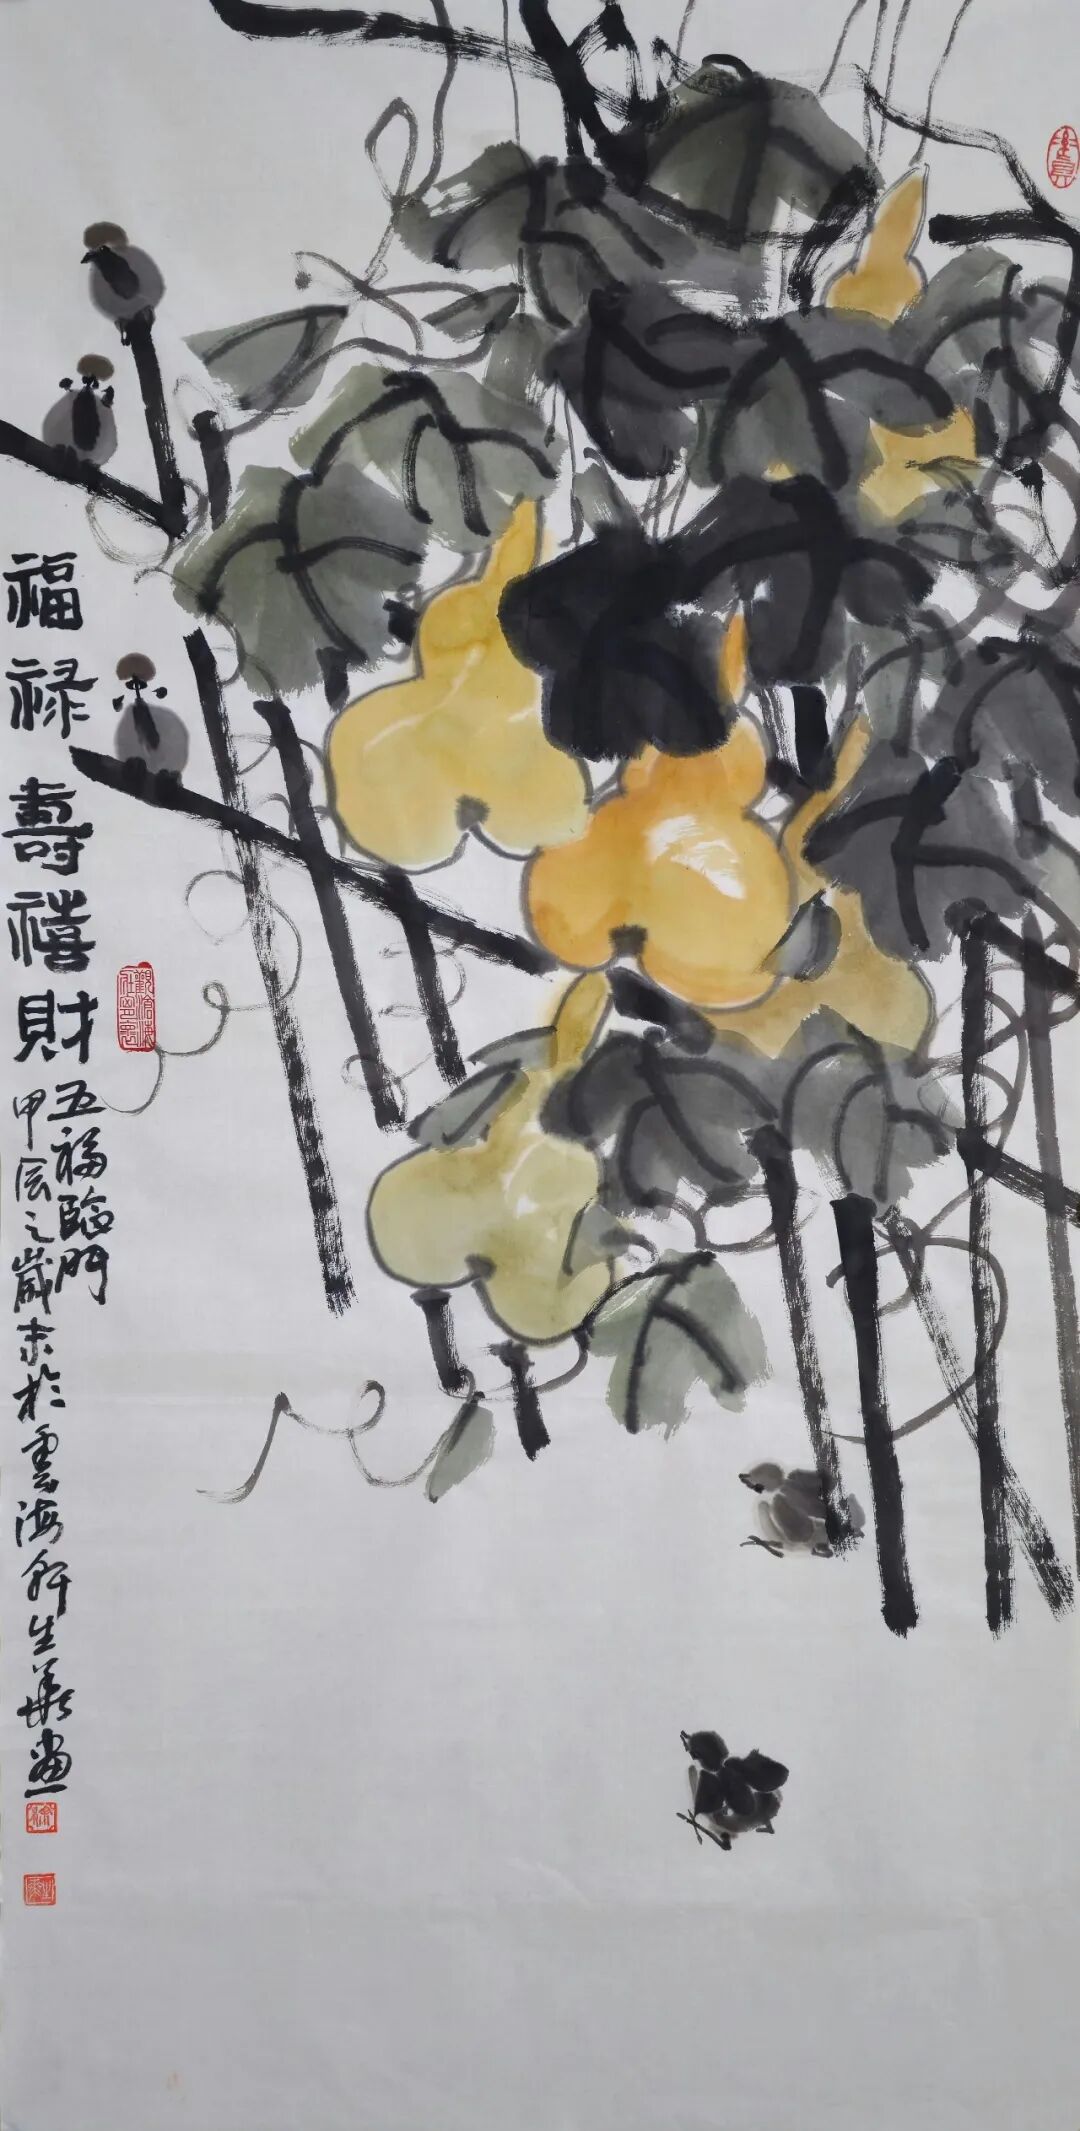 福禄壽禧財
五福臨門
甲辰之歲末於雲海軒生華畫